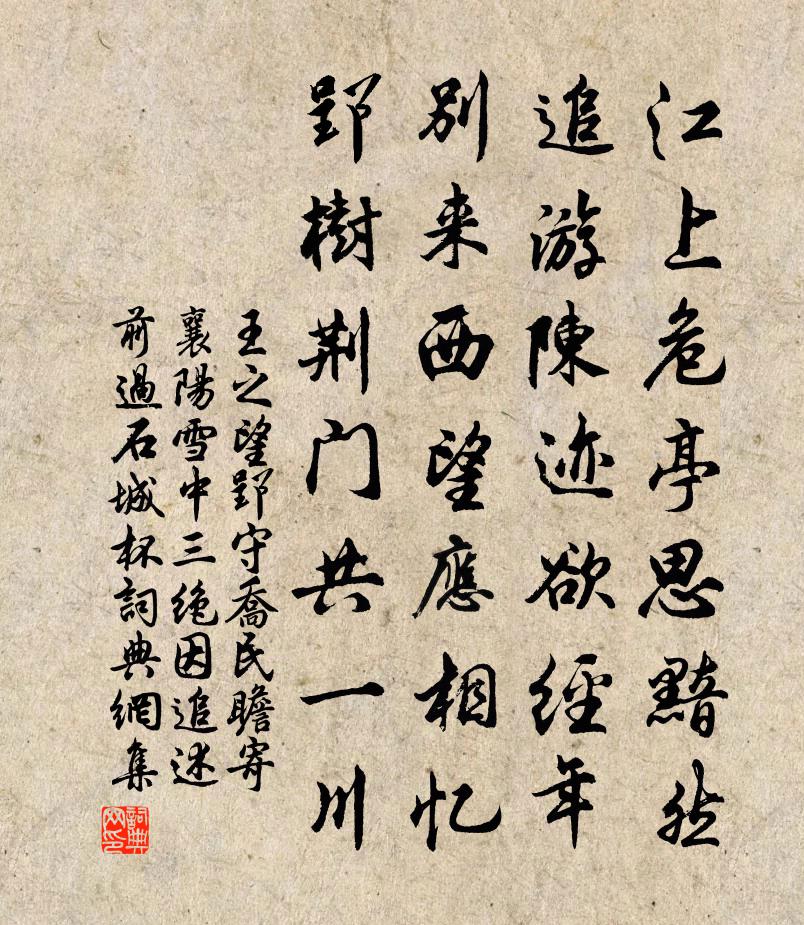 江上危亭思黯然
追游陳迹欲經年
別来西望應相忆
郢樹荆门共一川
王之望郢守喬民瞻寄
襄陽雪中三绝因追述
前過石城杯詞典網集
詞典网印